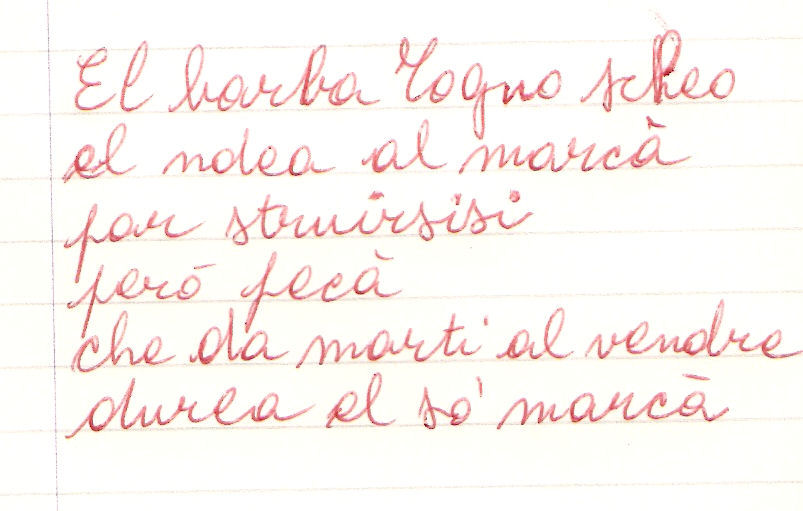 El barba Togno scheo
el ndea al marcà
par struirsisi
però pecà
che da marti al vendre
durea el so' marcà